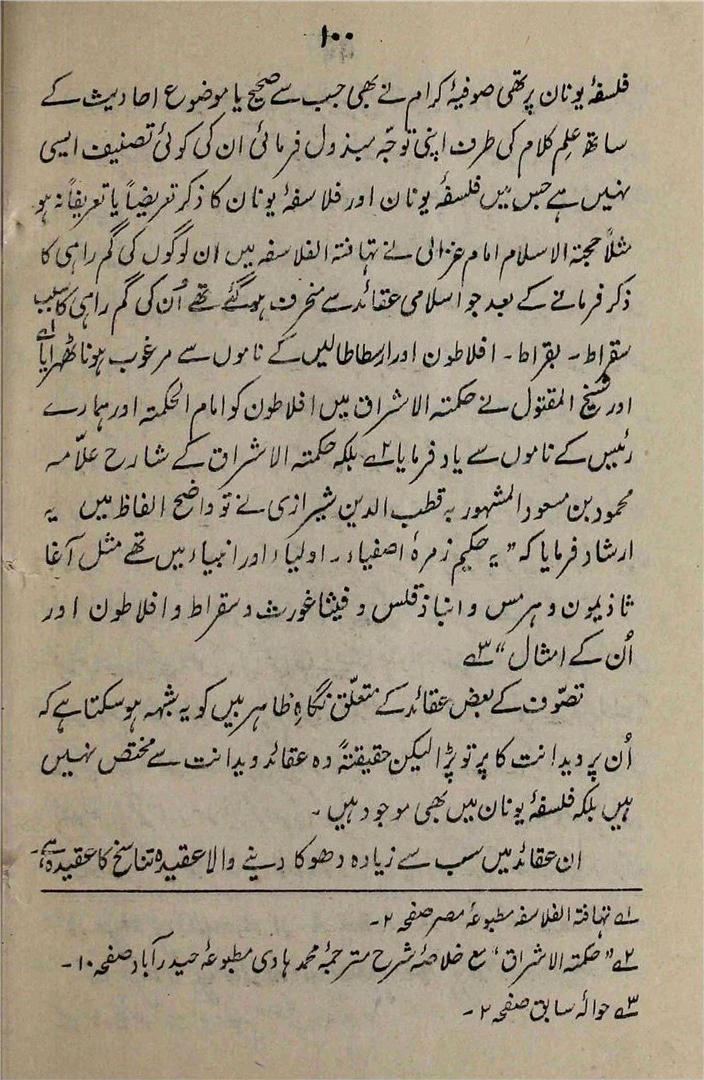 ۱۰۰
فلسفۂ یونان پر تھی صوفیۂ کرام نے بھی جب سے صحیح یا موضوع احادیث کے
ساتھ علم کلام کی طرف اپنی توجہ مبذول فرمائی ان کی کوئی تصنیف ایسی
نہیں ہے جس میں فلسفۂ یونان اور فلاسفۂ یونان کا ذکر تعریضاً یا تعریفاً نہ ہو
مثلاً حجتہ الاسلام امام غزالی نے تہافتہ الفلاسفہ میں ان لوگوں کی گم راہی کا
ذکر فرمانے کے بعد جو اسلامی عقائد سے منحرف ہو گئے تھے اُن کی گم راہی کا سبب
سقراط۔ بقراط۔ افلاطون اور ارسطاطالیس کے ناموں سے مرغوب ہونا ٹھہرایا ۱؎
اور شیخ المقتول نے حکمتہ الاشراق میں افلاطون کو امام الحکمتہ اور ہمارے
رئیس کے ناموں سے یاد فرمایا ۲؎ بلکہ حکمتہ الاشراق کے شارح علّامہ
محمود بن مسعود المشہور بہ قطب الدین شیرازی نے تو واضح الفاظ میں یہ
ارشاد فرمایا کہ ”یہ حکیم زمرۂ اصفیاء۔ اولیاء اور انبیاء میں تھے مثل آغا
ثاذیمون و ہرمس و انباذقلس و فیثاغورث و سقراط و افلاطون اور
اُن کے امثال“ ۳؎
تصوّف کے بعض عقائد کے متعلق نگاہِ ظاہر بیں کو یہ شبہہ ہو سکتا ہے کہ
اُن پر ویدانت کا پرتو پڑا لیکن حقیقتہً وہ عقائد ویدانت سے مختص نہیں
ہیں بلکہ فلسفۂ یونان میں بھی موجود ہیں۔
ان عقائد میں سب سے زیادہ دھوکا دینے والا عقیدہ تناسخ کا عقیدہ ہے۔
۱؎ تہافتہ الفلاسفہ مطبوعۂ مصر صفحہ ۲۔
۲؎ ”حکمتہ الاشراق‘ مع خلاصۂ شرح مترجمۂ محمد ہادی مطبوعۂ حیدرآباد صفحہ ۱۰۔
۳؎ حوالۂ سابق صفحہ ۲۔